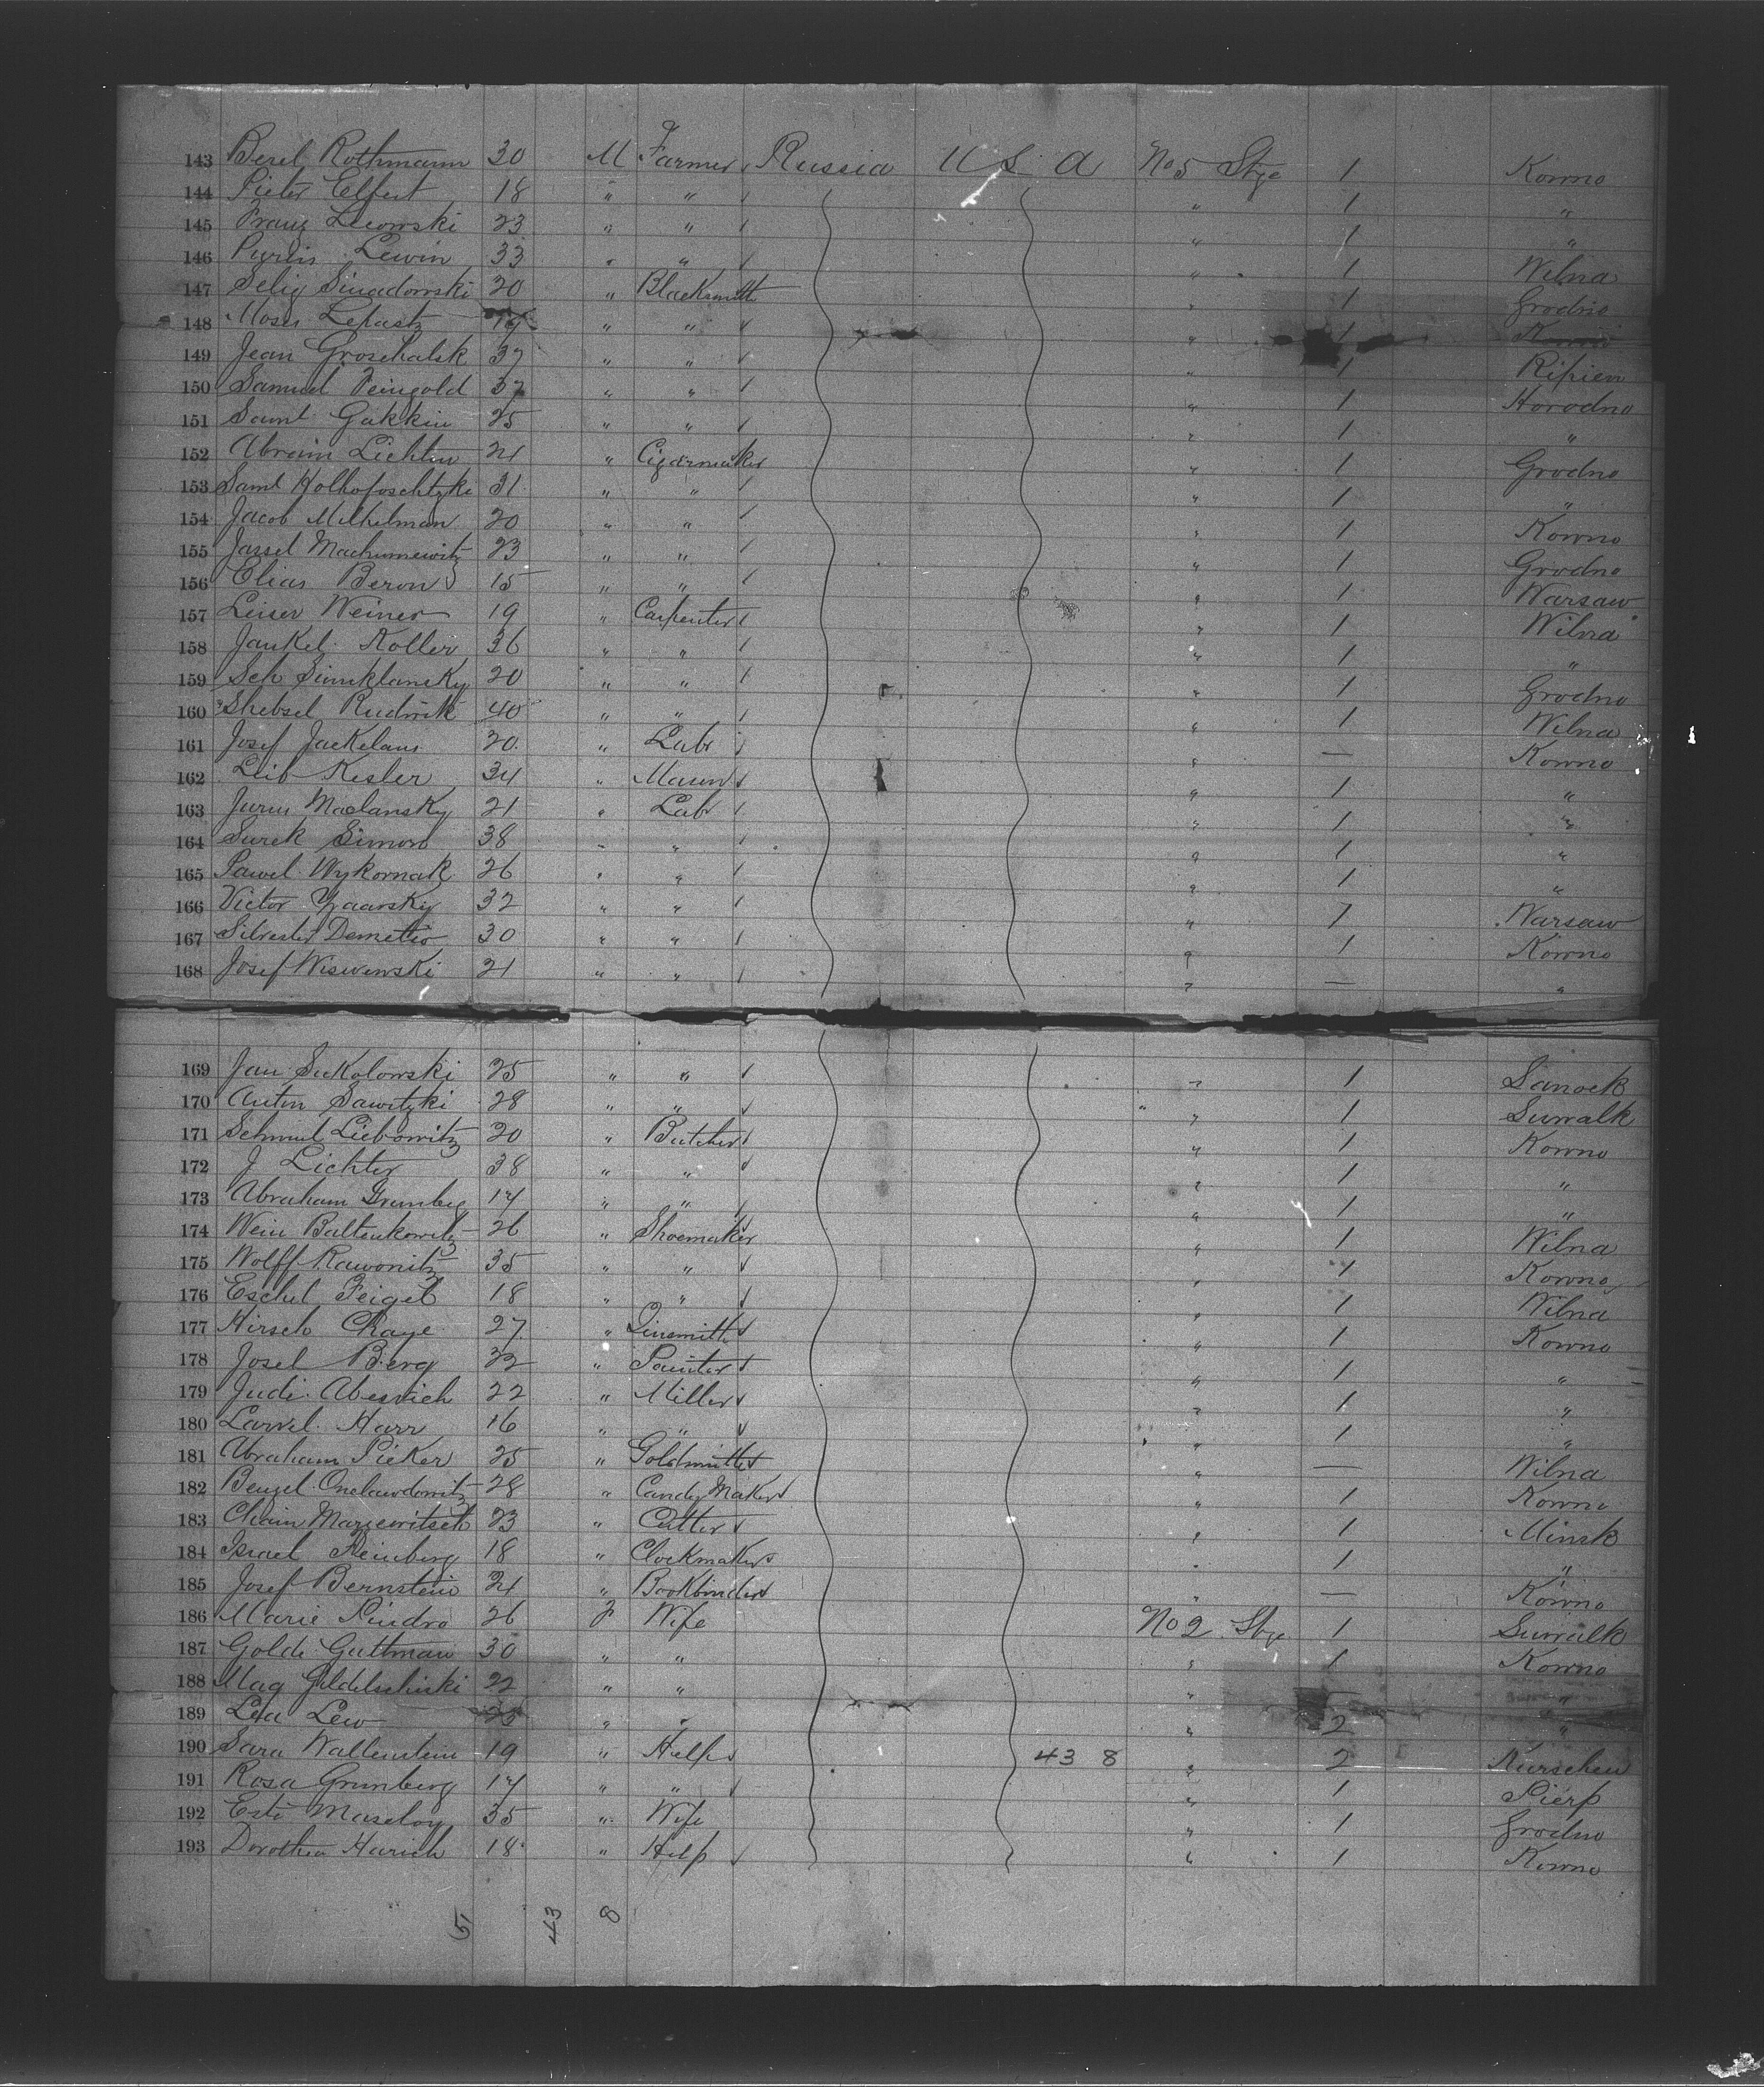 143 Berel Rothmann 30 M Farmer Russia U S A No 5 Stge 1 Kowno
144 Pieter Elfert 18 " " " 1 "
145 Franz Lewowski 23 " " " 1 "
146 Lewin 33 " " " 1 Wilna
147 Selig Sinadowski 20 " Blacksmith " 1 Grodno
148 Moses " " " 1
149 Jean Groschalsk 37 " " " 1 Ripien
150 Samuel Feingold 37 " " " 1 Horodno
151 Saml Gakkin 25 " " " 1 "
152 Abraim Lichten 21 " Cigarmaker " 1 Grodno
153 Saml Kolhofoschtzki 31 " " " 1 "
154 Jacob Milhelman 20 " " " 1 Kowno
155 Jassel Machumewitz 23 " " " 1 Grodno
156 Elias Beron 15 " " " 1 Warsaw
157 Leiser Weiner 19 " Carpenter " 1 Wilna
158 Jankel Koller 36 " " " 1 "
159 Sch Simklansky 20 " " " 1 Grodno
160 Shebsel Rudnik 40 " " " 1 Wilna
161 Josef Jackelans 20 " Labr " — Kowno
162 Leib Kesler 34 " Mason " 1 "
163 Maclansky 21 " Labr " 1 "
164 Surek Simon 38 " " " 1 "
165 Pawel Wykornak 26 " " " 1 "
166 Victor 32 " " " 1 Warsaw
167 Silvester Demetio 30 " " " 1 Kowno
168 Josef Wiswenski 21 " " " — "
169 Jan Sukolowski 25 " " " 1 Sanock
170 Anton Sawitzki 28 " " " 1 Suwalk
171 Schmul Liebowitz 20 " Butcher " 1 Kowno
172 J Lichter 38 " " " 1 "
173 Abraham Grunberg 17 " " " 1 "
174 Wein Baltenkowitz 26 " Shoemaker " 1 Wilna
175 Wolff Rawonitz 35 " " " 1 Kowno
176 Eschel Feigel 18 " " " 1 Wilna
177 Hirsch Chaye 27 " Tinsmith " 1 Kowno
178 Josel Berg 32 " Painter " 1 "
179 Judi 22 " Miller " 1 "
180 Harr 16 " " " 1 "
181 Abraham Picker 25 " Goldsmith " — Wilna
182 Benzel Onelawdowitz 28 " Candy Maker " 1 Kowno
183 Chaim Marjewitsch 23 " Cutter " 1 Minsk
184 Israel Steinberg 18 " Clockmaker " 1 "
185 Josef Bernstein 21 " Bookbinder " — Kowno
186 Marie Pindro 26 F Wife No 2 Stge 1 Suwalk
187 Golde Guttman 30 " " " 1 Kowno
188 Mag 22 " " " "
189 Lea Lew 25 " " " 2 "
190 Sara Wallenstein 19 " Help 43 8 " 2 Kurschen
191 Rosa Grunberg 17 " " " 1 Pierp
192 Maseloy 35 " Wife " 1 Grodno
193 Dorothea Harich 18 " Help " 1 Kowno
51 43 8